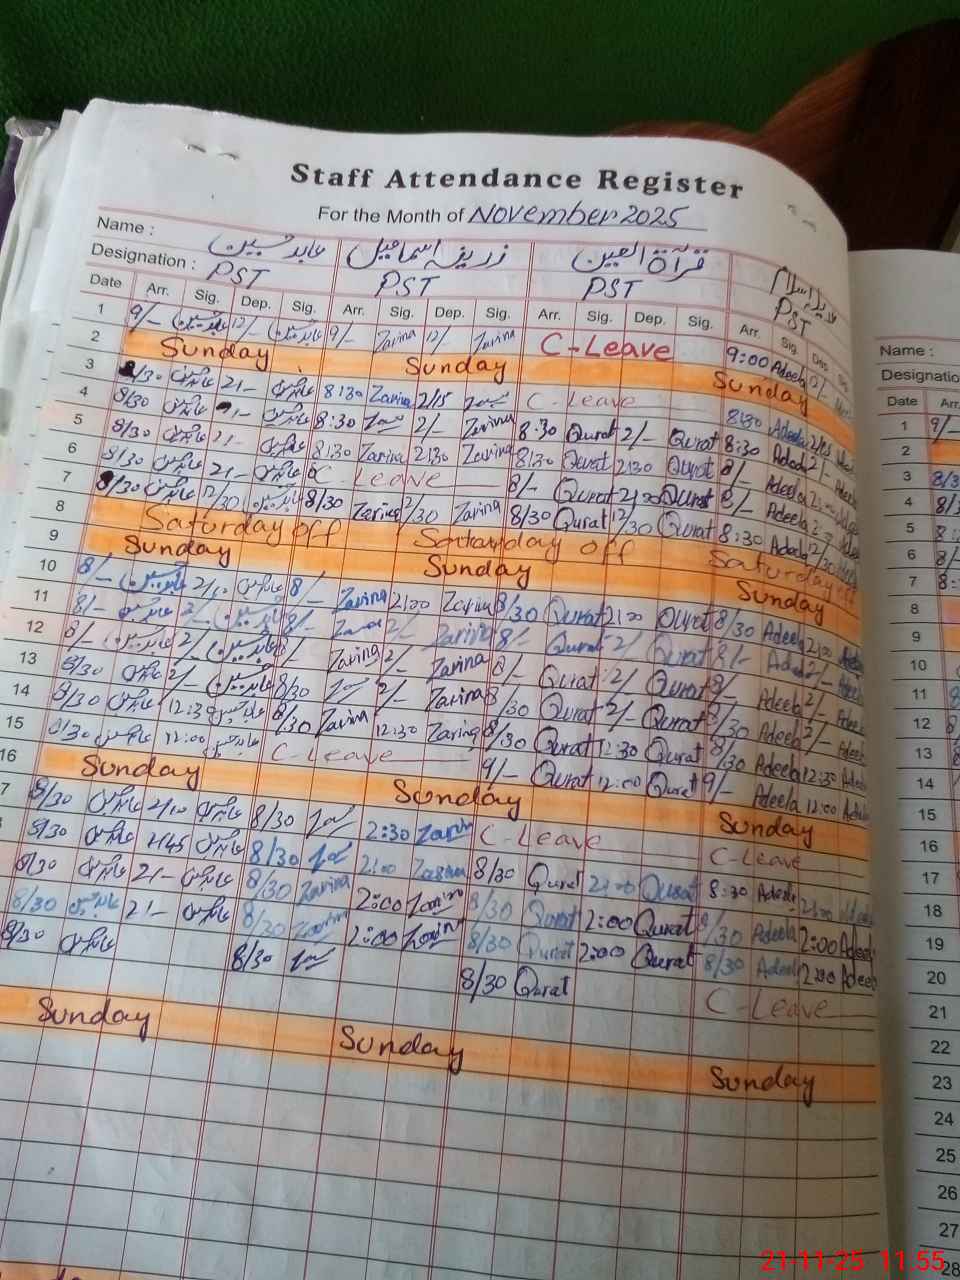 Staff Attendance Register
For the Month of November 2025
Name : عابد حسین زریفہ اسماعیل قرآۃ العین
Designation : PST PST PST PST
Date Arr. Sig. Dep. Sig. Arr. Sig. Dep. Sig. Arr. Sig. Dep. Sig. Arr. Sig. Dep.
1 9/- عابد حسین 12/- عابد حسین 9/- Zarina 12/- Zarina C-Leave 9:00 Adeela 12/-
2 Sunday Sunday Sunday
3 8/30 عابد حسین 2/- عابد حسین 8:30 Zarina 2/15 C-Leave 8:30 Adeela
4 8/30 عابد حسین عابد حسین 8:30 2/- Zarina 8:30 Qurat 2/- Qurat 8:30 Adeela 2/-
5 8/30 عابد حسین 2/- عابد حسین 8:30 Zarina 2:30 Zarina 8:30 Qurat 2:30 Qurat 8/- Adeela
6 8/30 عابد حسین 2/- عابد حسین C-Leave 8/- Qurat 2:00 Qurat 8/- Adeela
7 8/30 عابد حسین 12/30 عابد حسین 8/30 Zarina 12/30 Zarina 8/30 Qurat 12/30 Qurat 8:30 Adeela 12/30
8 Saturday off Saturday off Saturday off
9 Sunday Sunday Sunday
10 8/- عابد حسین عابد حسین 8/- Zarina 2:00 Zarina 8/30 Qurat 2:00 Qurat 8/30 Adeela 2:00
11 8/- عابد حسین 2/- عابد حسین 8/- 2/- Zarina 8/- Qurat 2/- Qurat 8/- Adeela 2/- Adeela
12 8/- عابد حسین 2/- عابد حسین 8/- Zarina 2/- Zarina 8/- Qurat 2/- Qurat 8/- Adeela 2/- Adeela
13 8/30 عابد حسین 2/- عابد حسین 8/30 2/- Zarina 8/30 Qurat 2/- Qurat 8/30 Adeela 2/- Adeela
14 8/30 عابد حسین 12:30 عابد حسین 8/30 Zarina 12:30 Zarina 8/30 Qurat 12:30 Qurat 8/30 Adeela 12:30 Adeela
15 8/30 عابد حسین 12:00 عابد حسین C-Leave 9/- Qurat 12:00 Qurat 9/- Adeela 12:00 Adeela
16 Sunday Sunday Sunday
7 8/30 عابد حسین 2/10 عابد حسین 8/30 2:30 Zarina C-Leave C-Leave
8/30 عابد حسین 1:45 عابد حسین 8/30 2:00 Zarina 8/30 Qurat 2:00 Qurat 8:30 Adeela 2:00 Adeela
8/30 عابد حسین 2/- عابد حسین 8/30 Zarina 2:00 Zarina 8/30 Qurat 2:00 Qurat 8/30 Adeela 2:00 Adeela
8/30 عابد حسین 2/- عابد حسین 8/30 Zarina 2:00 Zarina 8/30 Qurat 2:00 Qurat 8/30 Adeela 2:00 Adeela
8/30 عابد حسین 8/30 8/30 Qurat C-Leave
Sunday Sunday Sunday
Name :
Designatio
Date Arr.
1 9/-
2
3 8/3
4 8/3
5 8:
6 8/-
7 8:
8
9
10
11
12
13
14
15
16
17
18
19
20
21
22
23
24
25
26
27
28
21-11-25 11.55